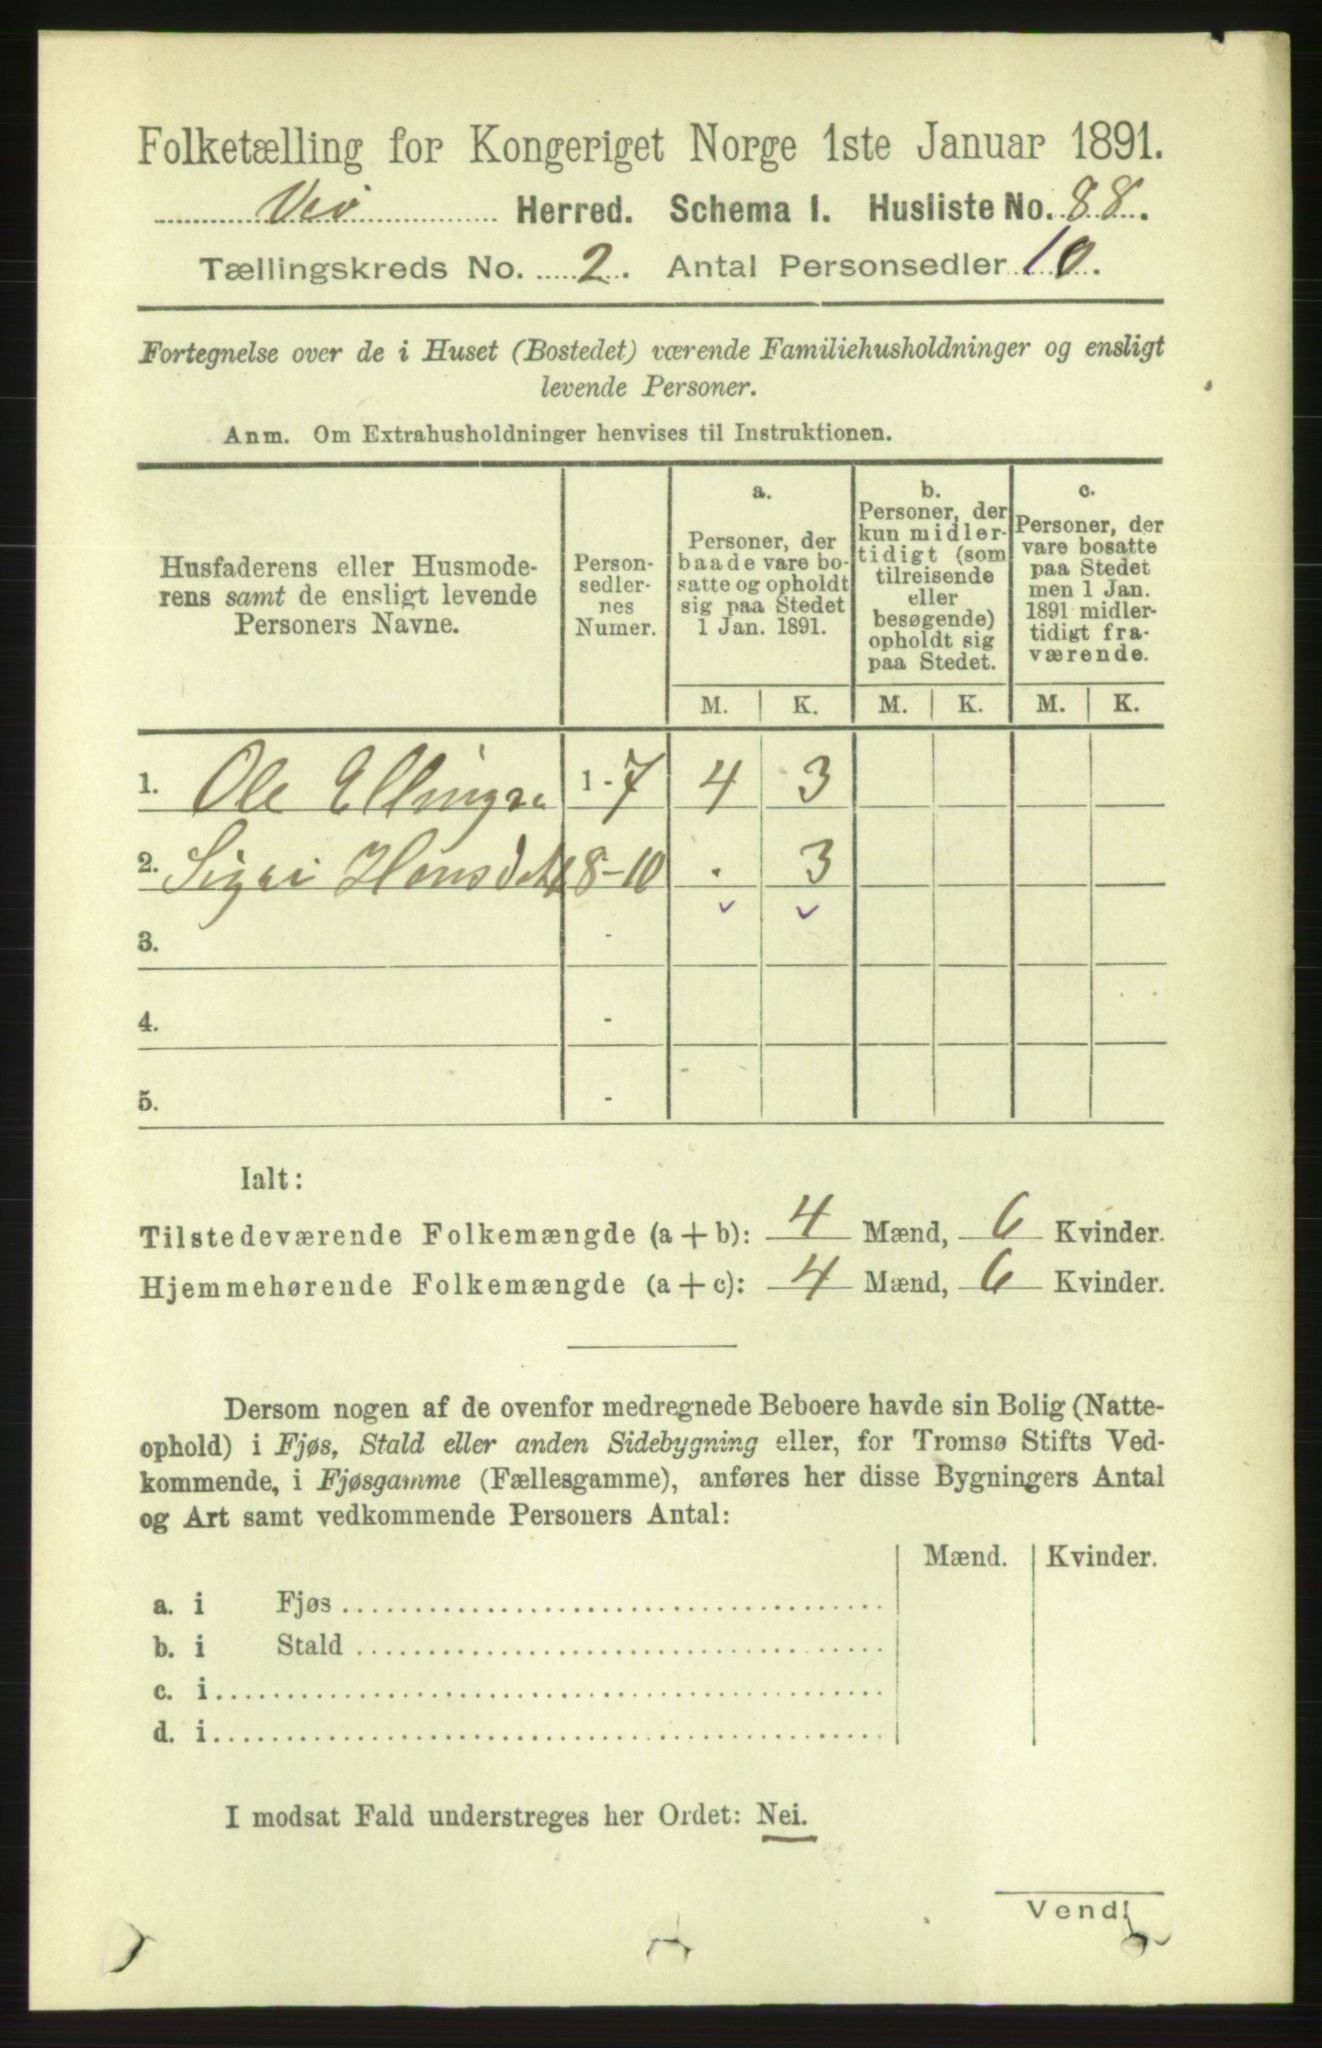 Folketælling for Kongeriget Norge 1ste Januar 1891.
Veø Herred. Schema I. Husliste No. 88.
Tællingskreds No. 2. Antal Personsedler 10.
Fortegnelse over de i Huset (Bostedet) værende Familiehusholdninger og ensligt
levende Personer.
Anm. Om Extrahusholdninger henvises til Instruktionen.
Husfaderens eller Husmode-
rens samt de ensligt levende
Personers Navne.
Person-
sedler-
nes
Numer.
a.
Personer, der
baade vare bo-
satte og opholdt
sig paa Stedet
1 Jan. 1891.
b.
Personer, der
kun midler-
tidigt (som
tilreisende
eller
besøgende)
opholdt sig
paa Stedet.
c.
Personer, der
vare bosatte
paa Stedet
men 1 Jan.
1891 midler-
tidigt fra-
værende.
M. K. M. K. M. K.
1. Ole Ellingsen 1-7 4 3
2. Sigri Hansdatter 8-10 . 3
3. -
4. -
5. -
Ialt:
Tilstedeværende Folkemængde (a+b): 4 Mænd, 6 Kvinder.
Hjemmehørende Folkemængde (a+c): 4 Mænd, 6 Kvinder.
Dersom nogen af de ovenfor medregnede Beboere havde sin Bolig (Natte-
ophold) i Fjøs, Stald eller anden Sidebygning eller, for Tromsø Stifts Ved-
kommende, i Fjøsgamme (Fællesgamme), anføres her disse Bygningers Antal
og Art samt vedkommende Personers Antal:
Mænd. Kvinder.
a. i Fjøs
b. i Stald
c. i
d. i
I modsat Fald understreges her Ordet: Nei.
Vend!